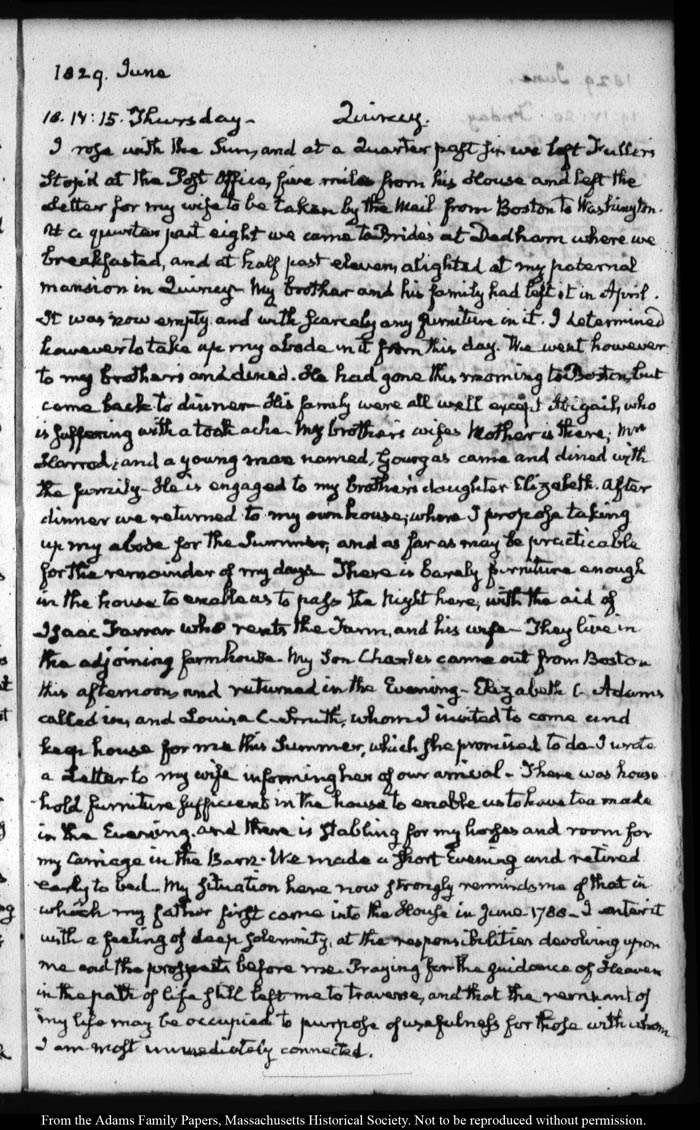 1829. June
18. IV:15. Thursday. Quincy.
I rose with the Sun, and at a quarter past six we left Fuller's
Stop'd at the Post Office, five miles from his House and left the
Letter for my wife to be taken by the Mail from Boston to Washington.
At a quarter past eight we came to Brides at Dedham where we
breakfasted, and at half past eleven, alighted at my paternal
mansion in Quincy. My brother and his family had left it in April.
It was now empty and with scarcely any furniture in it. I determined
however to take up my abode in it from this day. We went however
to my brother's and dined. He had gone this morning to Boston, but
came back to dinner. His family were all well except Abigail, who
is suffering with a tooth ache. My brother's wife's Mother is there; Mrs
Harrod; and a young man named, Gourgas came and dined with
the family. He is engaged to my brother's daughter Elizabeth. After
dinner we returned to my own house; where I propose taking
up my abode for the Summer, and as far as may be practicable
for the remainder of my days. There is barely furniture enough
in the house to enable us to pass the Night here, with the aid of
Isaac Farrar who rents the Farm, and his wife. They live in
the adjoining farm house. My Son Charles came out from Boston
this afternoon, and returned in the Evening. Elizabeth C. Adams
called in, and Louisa C. Smith, whom I invited to come and
keep house for me this Summer, which she promised to do. I wrote
a Letter to my wife informing her of our arrival. There was house-
hold furniture sufficient in the house to enable us to have tea made
in the Evening. and there is stabling for my horses and room for
my Carriage in the Barn. We made a short Evening and retired
early to bed. My situation here now strongly reminds me of that in
which my father first came into the House in June 1788. I enter it
with a feeling of deep solemnity, at the responsibilities devolving upon
me and the prospects before me. Praying for the guidance of Heaven
in the path of life still left me to traverse, and that the remnant of
my life may be occupied to purpose of usefulness for those with whom
I am most immediately connected.
From the Adams Family Papers, Massachusetts Historical Society. Not to be reproduced without permission.